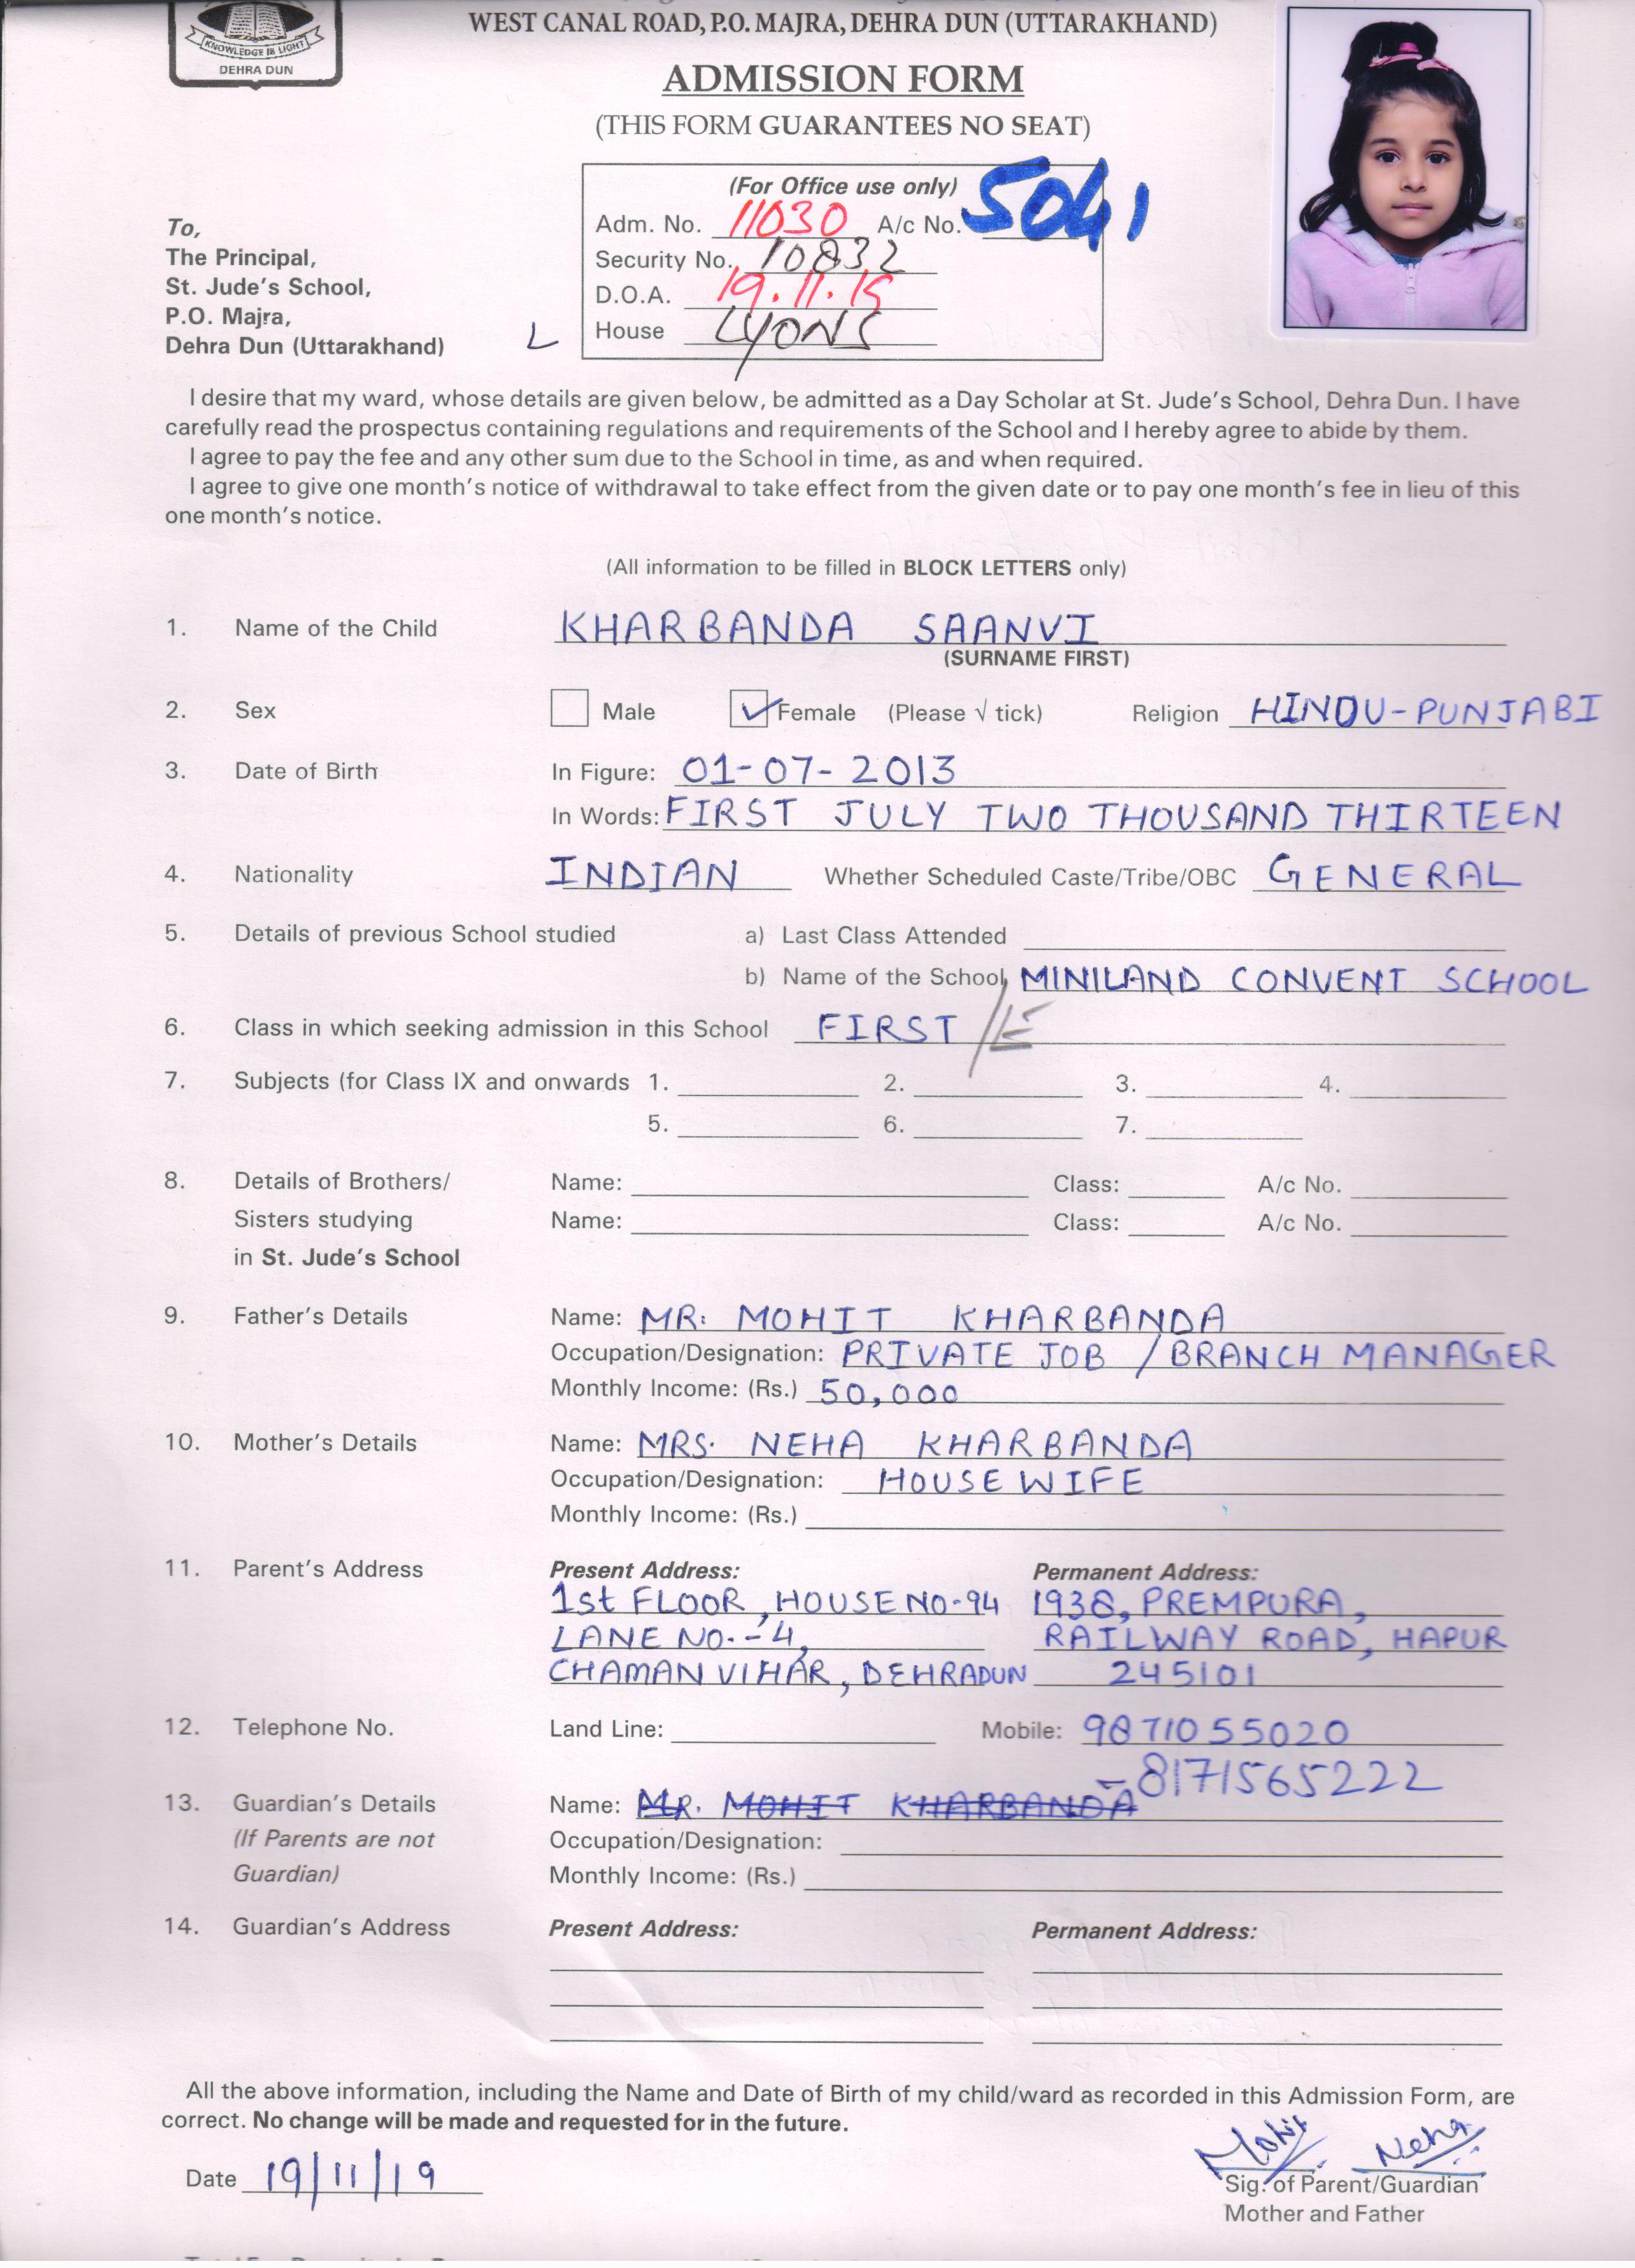 KNOWLEDGE IS LIGHT
DEHRA DUN
WEST CANAL ROAD, P.O. MAJRA, DEHRA DUN (UTTARAKHAND)
ADMISSION FORM
(THIS FORM GUARANTEES NO SEAT)
(For Office use only)
Adm. No. 11030 A/c No. 5041
Security No. 10832
D.O.A. 19.11.19
House LYONS
To,
The Principal,
St. Jude's School,
P.O. Majra,
Dehra Dun (Uttarakhand)
L
I desire that my ward, whose details are given below, be admitted as a Day Scholar at St. Jude's School, Dehra Dun. I have
carefully read the prospectus containing regulations and requirements of the School and I hereby agree to abide by them.
I agree to pay the fee and any other sum due to the School in time, as and when required.
I agree to give one month's notice of withdrawal to take effect from the given date or to pay one month's fee in lieu of this
one month's notice.
(All information to be filled in BLOCK LETTERS only)
1. Name of the Child KHARBANDA SAANVI
(SURNAME FIRST)
2. Sex Male Female (Please √ tick) Religion HINDU-PUNJABI
3. Date of Birth In Figure: 01-07-2013
In Words: FIRST JULY TWO THOUSAND THIRTEEN
4. Nationality INDIAN Whether Scheduled Caste/Tribe/OBC GENERAL
5. Details of previous School studied a) Last Class Attended
b) Name of the School MINILAND CONVENT SCHOOL
6. Class in which seeking admission in this School FIRST /E
7. Subjects (for Class IX and onwards 1. 2. 3. 4.
5. 6. 7.
8. Details of Brothers/ Name: Class: A/c No.
Sisters studying Name: Class: A/c No.
in St. Jude's School
9. Father's Details Name: MR. MOHIT KHARBANDA
Occupation/Designation: PRIVATE JOB / BRANCH MANAGER
Monthly Income: (Rs.) 50,000
10. Mother's Details Name: MRS. NEHA KHARBANDA
Occupation/Designation: HOUSE WIFE
Monthly Income: (Rs.)
11. Parent's Address Present Address: Permanent Address:
1st FLOOR, HOUSE NO-94 1938, PREMPURA,
LANE NO.-4, RAILWAY ROAD, HAPUR
CHAMAN VIHAR, DEHRADUN 245101
12. Telephone No. Land Line: Mobile: 9871055020
- 8171565222
13. Guardian's Details Name: MR. MOHIT KHARBANDA
(If Parents are not Occupation/Designation:
Guardian) Monthly Income: (Rs.)
14. Guardian's Address Present Address: Permanent Address:
All the above information, including the Name and Date of Birth of my child/ward as recorded in this Admission Form, are
correct. No change will be made and requested for in the future.
Mohit Neha
Date 19/11/19
Sig. of Parent/Guardian
Mother and Father